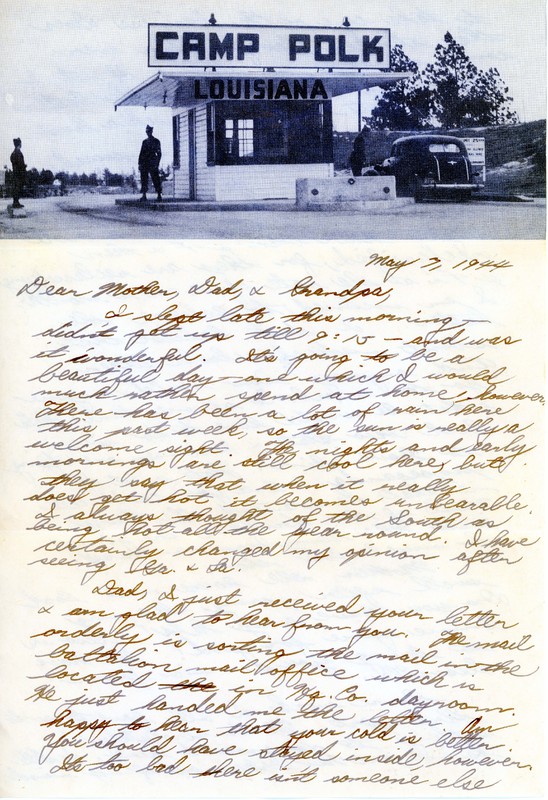 CAMP POLK
LOUISIANA
May 7, 1944
Dear Mother, Dad, & Grandpa,
I slept late this morning —
didn't get up till 9:15 — and was
it wonderful. It's going to be a
beautiful day — one which I would
much rather spend at home, however.
There has been a lot of rain here
this past week, so the sun is really a
welcome sight. The nights and early
mornings are still cool here, but
they say that when it really
does get hot it becomes unbearable.
I always thought of the South as
being hot all the year round. I have
certainly changed my opinion after
seeing Ga. & La.
Dad, I just received your letter
& am glad to hear from you. The mail
orderly is sorting the mail in the
battalion mail office which is
located in Hq. Co. dayroom.
He just handed me the letter. Am
happy to hear that your cold is better.
You should have stayed inside, however.
It's too bad there isn't someone else